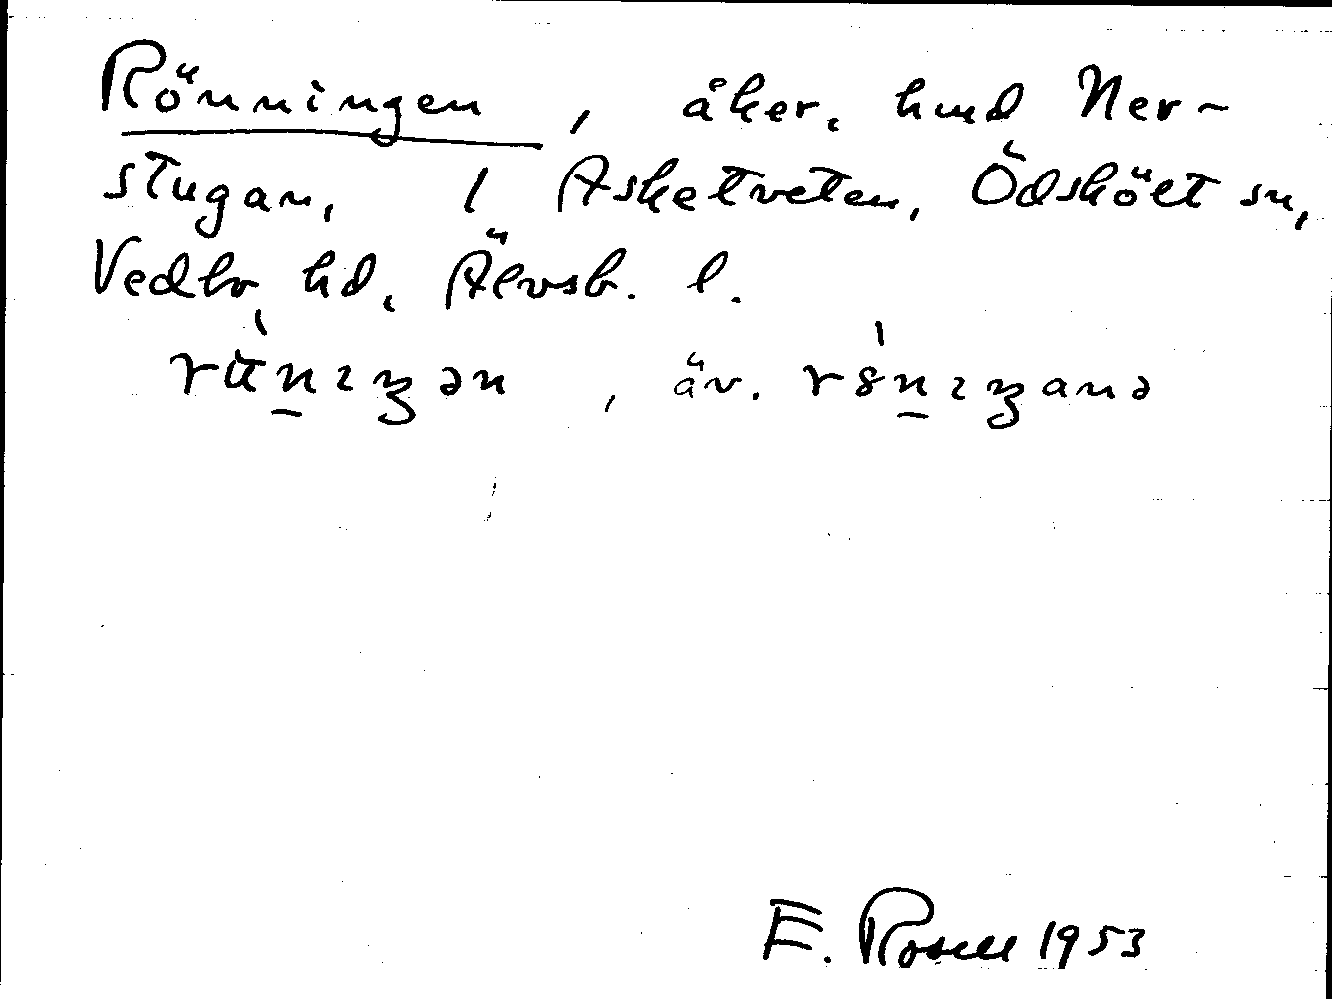 Rönningen, åker. hmd Ner-
stugan, 1 Asketveten, Ödskölt sn,
Vedbo hd, Älvsb. l.
rùnıȝən, äv. r8̀nıȝanə
E. Rosell 1953